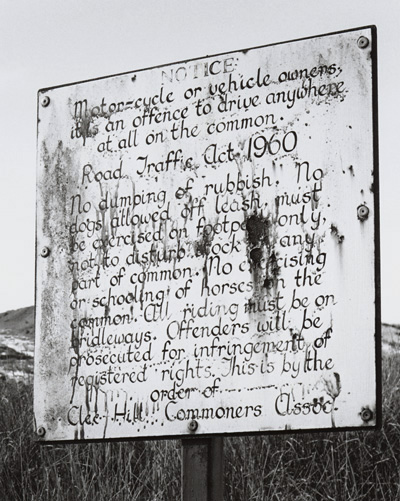 NOTICE
Motor-cycle or vehicle owners,
it is an offence to drive anywhere
at all on the common.
Road Traffic Act 1960
No dumping of rubbish. No
dogs allowed off leash, must
be exercised on footpath only,
not to disturb any
part of common. No
or schooling of horses on the
common. All riding must be on
bridleways. Offenders will be
prosecuted for infringement of
registered rights. This is by the
order of
Clee Hill Commoners Assoc.